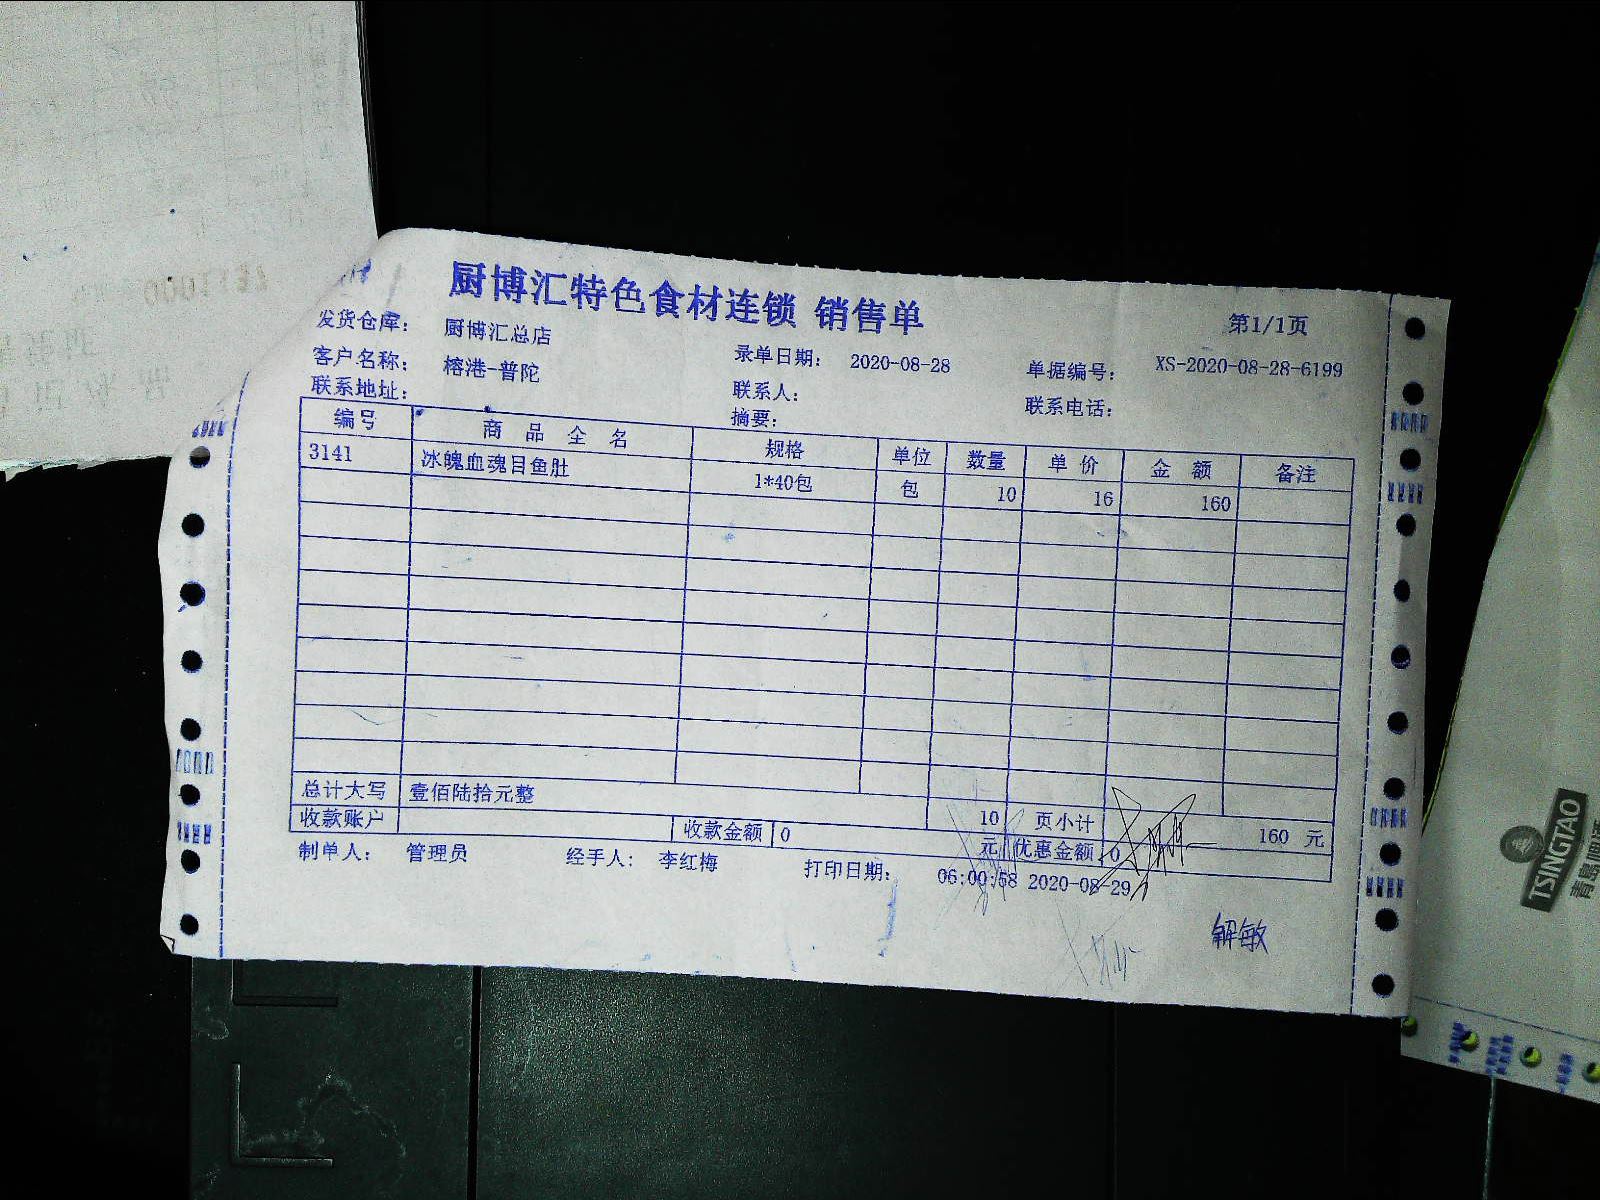 厨博汇特色食材连锁 销售单
第1/1页
发货仓库： 厨博汇总店
客户名称： 榕港-普陀 录单日期： 2020-08-28 单据编号： XS-2020-08-28-6199
联系地址： 联系人： 联系电话：
摘要：
编号 商品全名 规格 单位 数量 单价 金额 备注
3141 冰魄血魂目鱼肚 1*40包 包 10 16 160
总计大写 壹佰陆拾元整 10 页小计 160 元
收款账户 收款金额 0 元 优惠金额 0
制单人： 管理员 经手人： 李红梅 打印日期： 06:00:58 2020-08-29
解敏
TSINGTAO